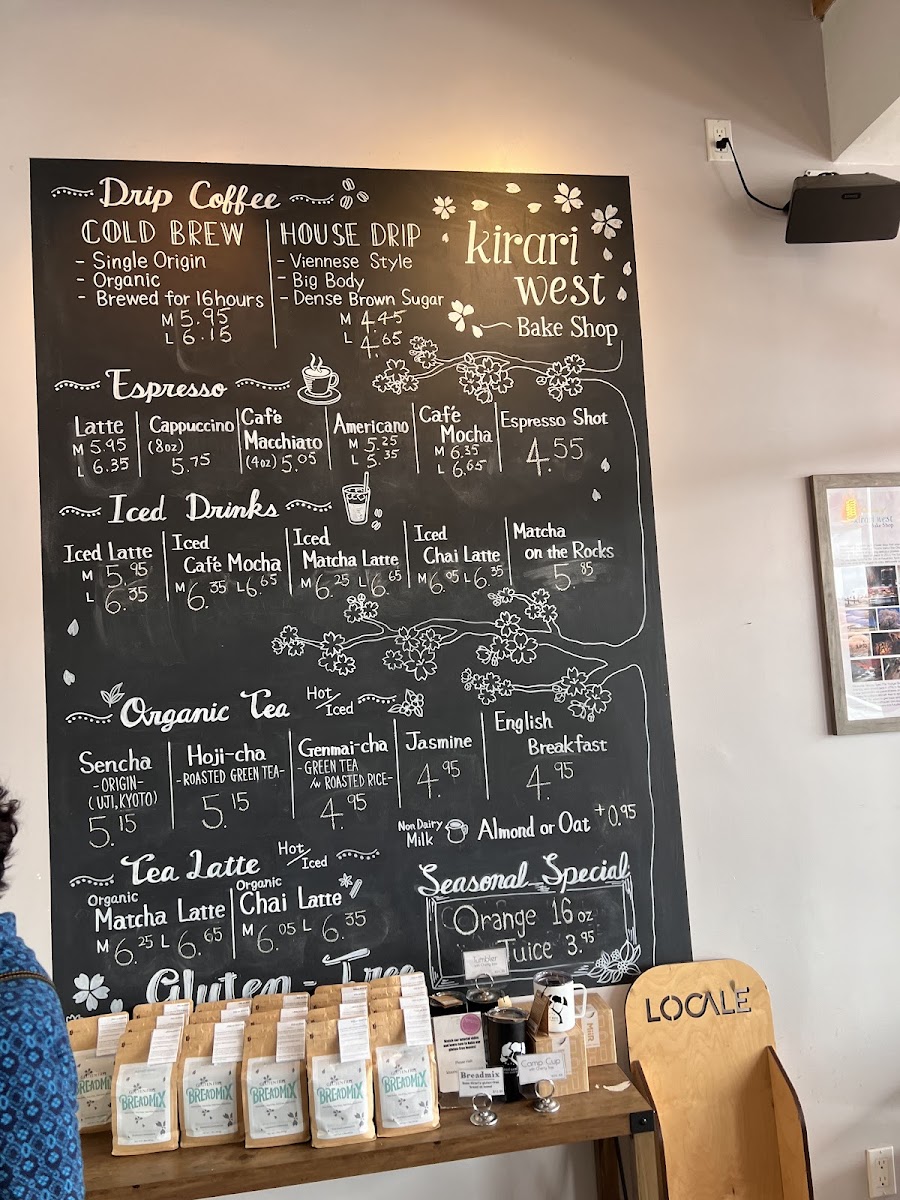 Drip Coffee
COLD BREW
- Single Origin
- Organic
- Brewed for 16 hours
M 5.95
L 6.15
HOUSE DRIP
- Viennese Style
- Big Body
- Dense Brown Sugar
M 4.45
L 4.65
kirari
west
Bake Shop
Espresso
Latte
M 5.95
L 6.35
Cappuccino
(8oz)
5.75
Café
Macchiato
(4oz) 5.05
Americano
M 5.25
L 5.35
Café
Mocha
M 6.35
L 6.65
Espresso Shot
4.55
Iced Drinks
Iced Latte
M 5.95
L 6.35
Iced
Café Mocha
M 6.35 L 6.65
Iced
Matcha Latte
M 6.25 L 6.65
Iced
Chai Latte
M 6.05 L 6.35
Matcha
on the Rocks
5.85
Organic Tea Hot/Iced
Sencha
-ORIGIN-
(UJI, KYOTO)
5.15
Hoji-cha
-ROASTED GREEN TEA-
5.15
Genmai-cha
-GREEN TEA
/w ROASTED RICE-
4.95
Jasmine
4.95
English
Breakfast
4.95
Non Dairy
Milk
Almond or Oat +0.95
Tea Latte Hot/Iced
Organic
Matcha Latte
M 6.25 L 6.65
Organic
Chai Latte
M 6.05 L 6.35
Seasonal Special
Orange 16 oz
Juice 3.95
Gluten-Free
Tumbler
Camp Cup
Breadmix
BREADMIX
BREADMIX
BREADMIX
BREADMIX
BREADMIX
BREADMIX
MiiR
LOCALE